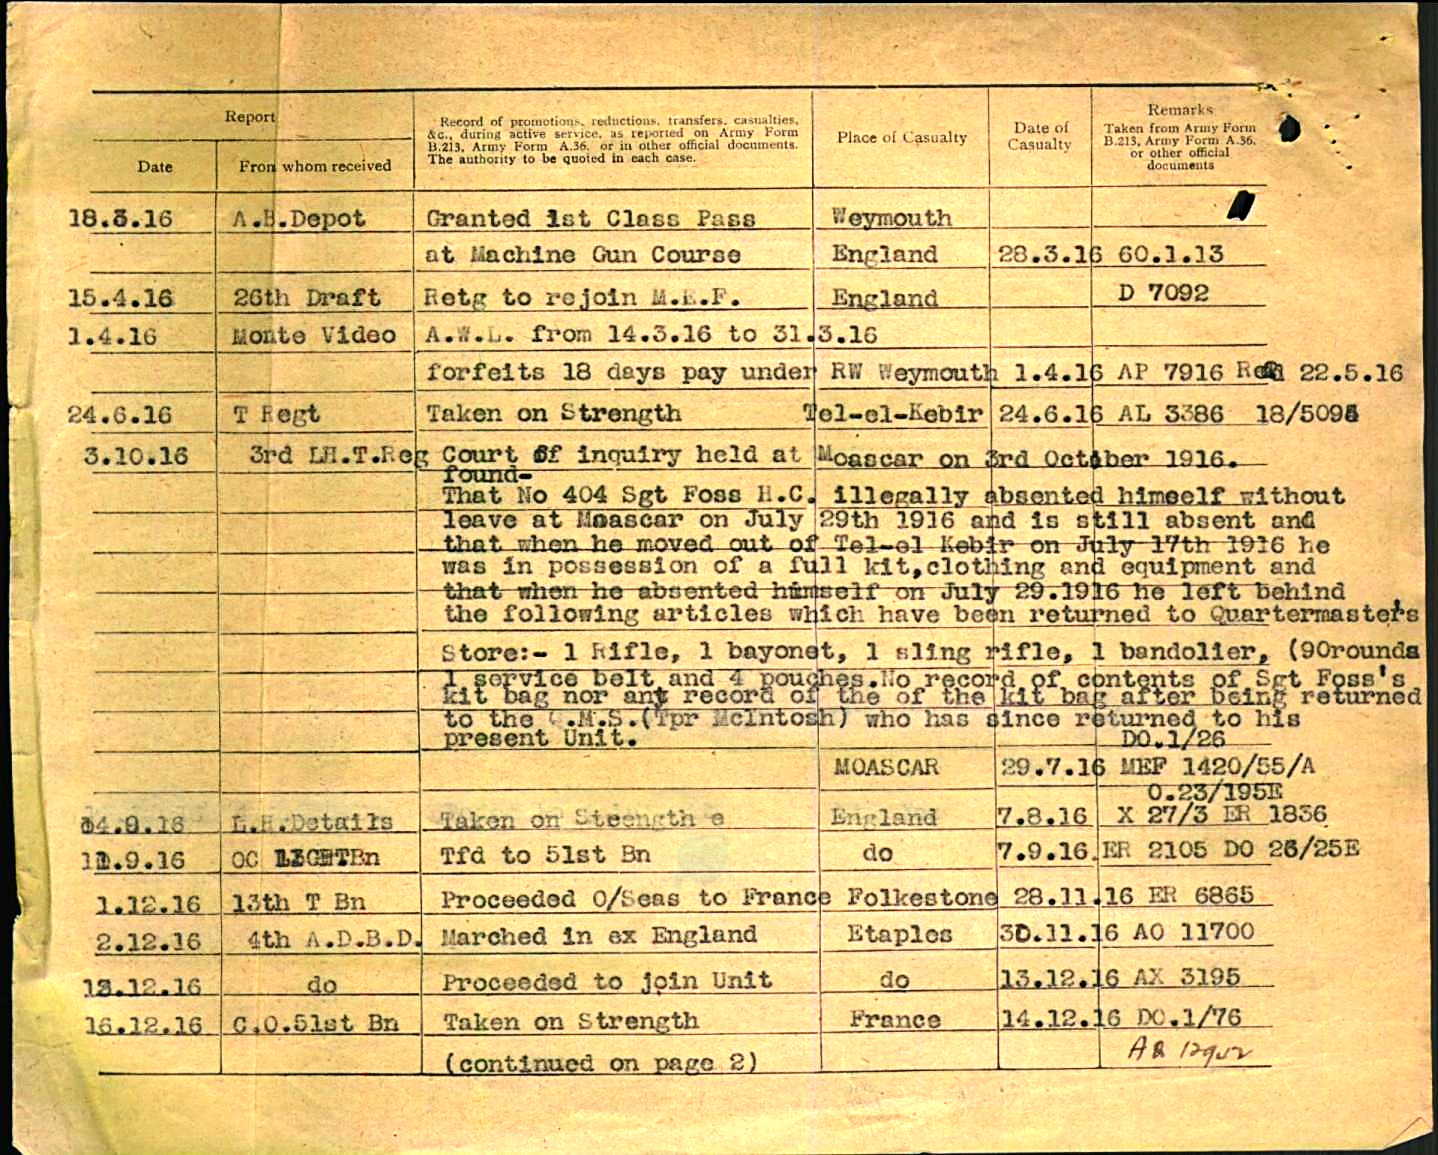 Report
Record of promotions, reductions, transfers, casualties, &c., during active service, as reported on Army Form B.213, Army Form A.36, or in other official documents. The authority to be quoted in each case.
Place of Casualty
Date of Casualty
Remarks Taken from Army Form B.213, Army Form A.36, or other official documents
Date From whom received
18.3.16 A.B.Depot Granted 1st Class Pass Weymouth
at Machine Gun Course England 28.3.16 60.1.13
15.4.16 26th Draft Retg to rejoin M.E.F. England D 7092
1.4.16 Monte Video A.W.L. from 14.3.16 to 31.3.16
forfeits 18 days pay under RW Weymouth 1.4.16 AP 7916 22.5.16
24.6.16 T Regt Taken on Strength Tel-el-Kebir 24.6.16 AL 3386 18/5095
3.10.16 3rd LH.T.Reg Court of inquiry held at Moascar on 3rd October 1916.
found-
That No 404 Sgt Foss H.C. illegally absented himself without
leave at Moascar on July 29th 1916 and is still absent and
that when he moved out of Tel-el Kebir on July 17th 1916 he
was in possession of a full kit,clothing and equipment and
that when he absented himself on July 29.1916 he left behind
the following articles which have been returned to Quartermasters'
Store:- 1 Rifle, 1 bayonet, 1 sling rifle, 1 bandolier, (90rounds
1 service belt and 4 pouches.No record of contents of Sgt Foss's
kit bag nor any record of the of the kit bag after being returned
to the Q.M.S.(Tpr McIntosh) who has since returned to his
present Unit. DO.1/26
MOASCAR 29.7.16 MEF 1420/55/A
0.23/195E
04.9.16 L.H.Details Taken on Steength e England 7.8.16 X 27/3 ER 1836
11.9.16 OC Bn Tfd to 51st Bn do 7.9.16. ER 2105 DO 26/25E
1.12.16 13th T Bn Proceeded O/Seas to France Folkestone 28.11.16 ER 6865
2.12.16 4th A.D.B.D. Marched in ex England Etaples 30.11.16 AO 11700
13.12.16 do Proceeded to join Unit do 13.12.16 AX 3195
16.12.16 C.O.51st Bn Taken on Strength France 14.12.16 DO.1/76
(continued on page 2)